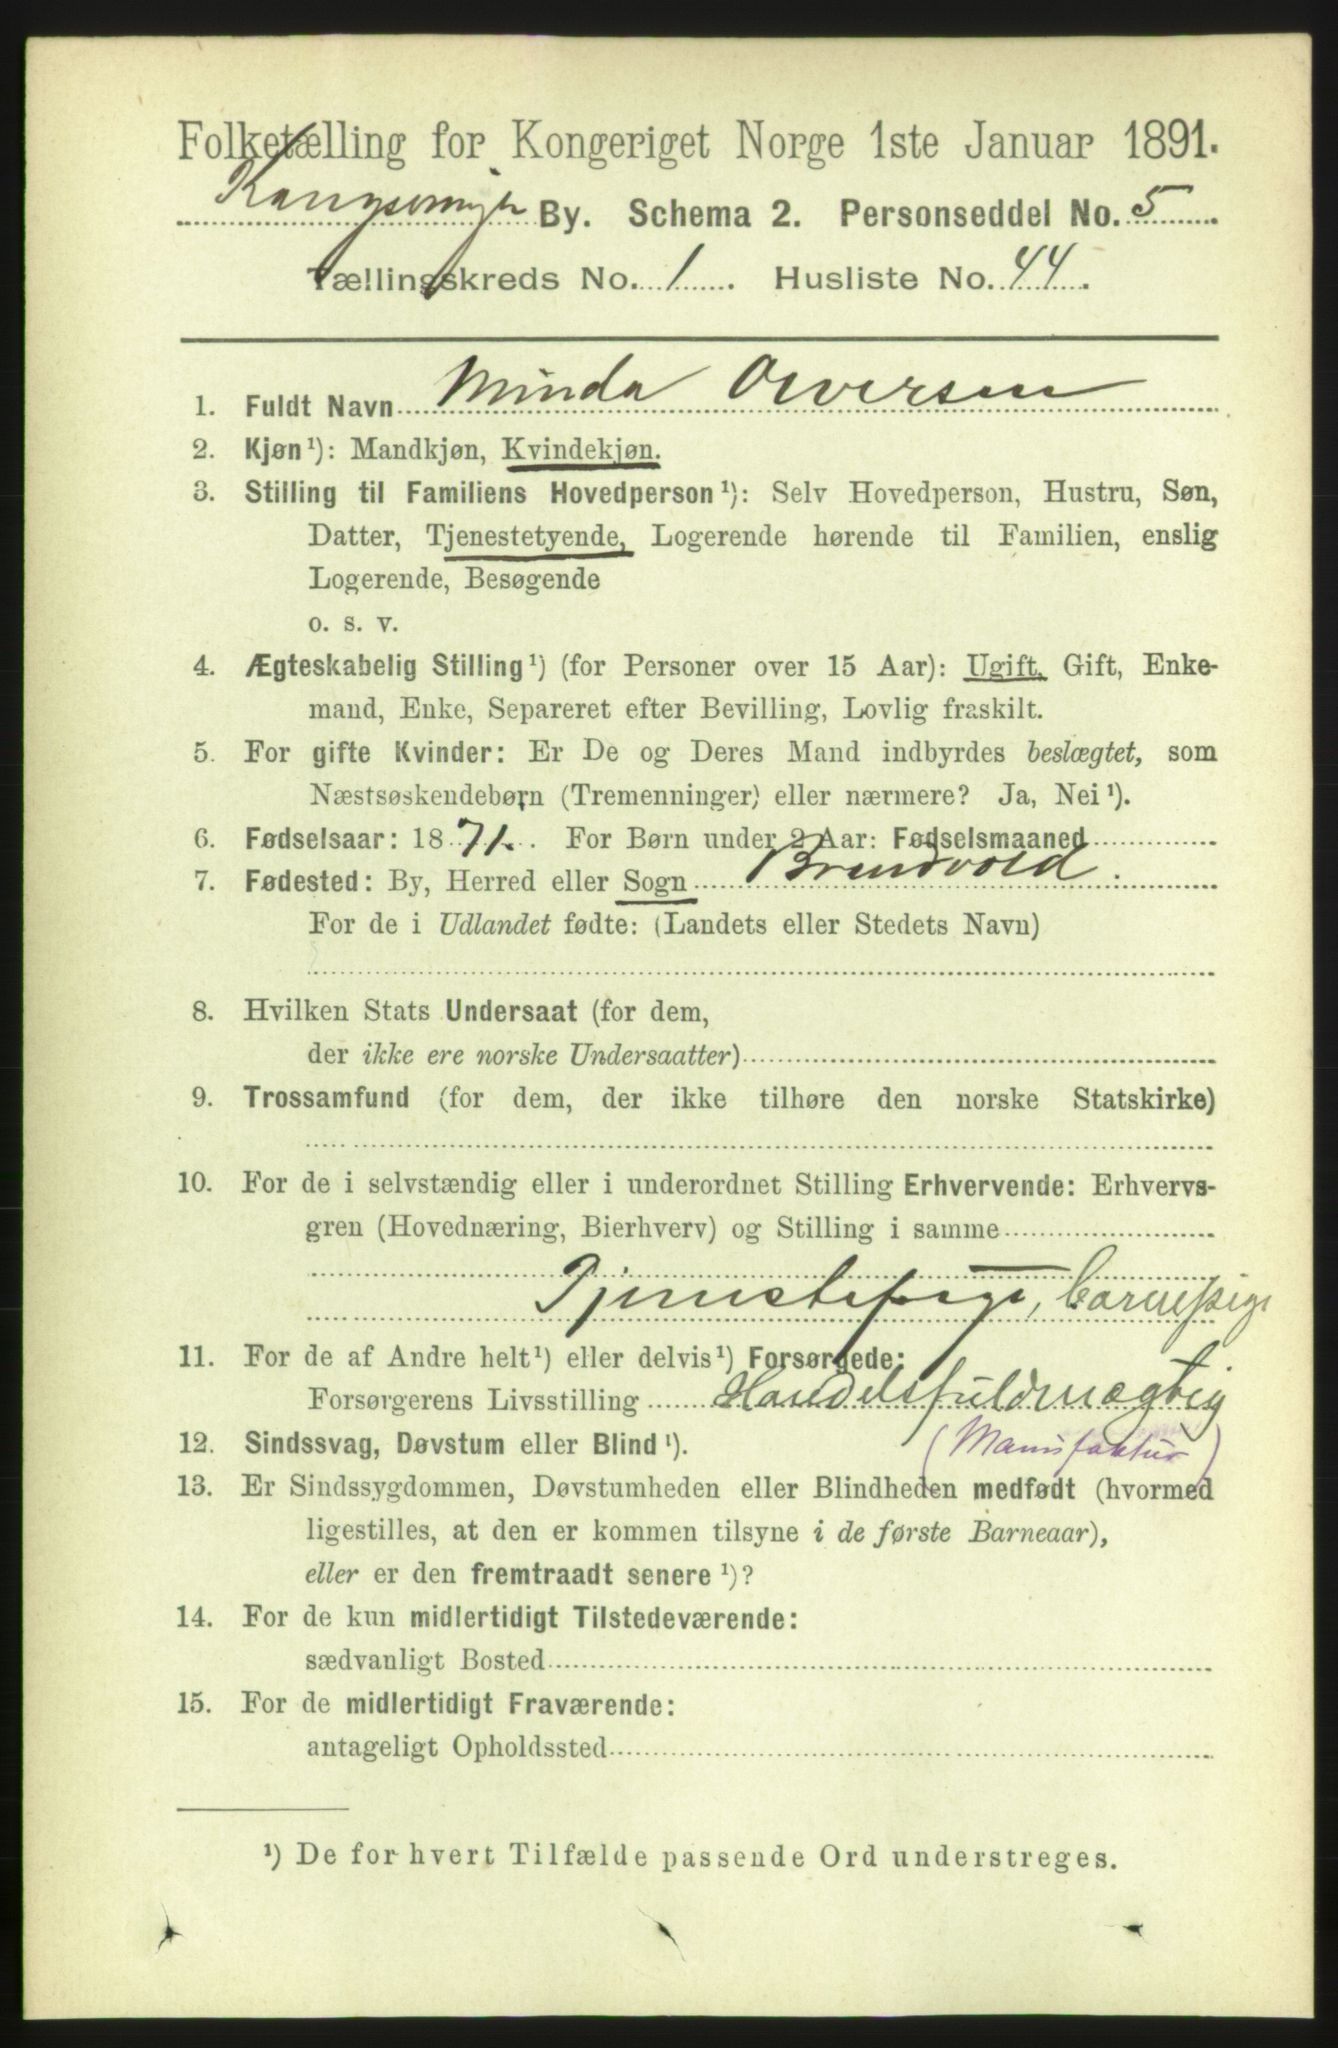 Folketælling for Kongeriget Norge 1ste Januar 1891.
Kongsvinger By. Schema 2. Personseddel No. 5
Tællingskreds No. 1. Husliste No. 44.
1. Fuldt Navn Minda
2. Kjøn¹): Mandkjøn, Kvindekjøn.
3. Stilling til Familiens Hovedperson¹): Selv Hovedperson, Hustru, Søn,
Datter, Tjenestetyende, Logerende hørende til Familien, enslig
Logerende, Besøgende
o. s. v.
4. Ægteskabelig Stilling¹) (for Personer over 15 Aar): Ugift, Gift, Enke-
mand, Enke, Separeret efter Bevilling, Lovlig fraskilt.
5. For gifte Kvinder: Er De og Deres Mand indbyrdes beslægtet, som
Næstsøskendebørn (Tremenninger) eller nærmere? Ja, Nei¹).
6. Fødselsaar: 1871. For Børn under 2 Aar: Fødselsmaaned
7. Fødested: By, Herred eller Sogn Brandvold.
For de i Udlandet fødte: (Landets eller Stedets Navn)
8. Hvilken Stats Undersaat (for dem,
der ikke ere norske Undersaatter)
9. Trossamfund (for dem, der ikke tilhøre den norske Statskirke)
10. For de i selvstændig eller i underordnet Stilling Erhvervende: Erhvervs-
gren (Hovednæring, Bierhverv) og Stilling i samme
Tjenestepige, barnepige
11. For de af Andre helt¹) eller delvis¹) Forsørgede:
Forsørgerens Livsstilling Handelsfuldmægtig
12. Sindssvag, Døvstum eller Blind¹). (Manufaktur)
13. Er Sindssygdommen, Døvstumheden eller Blindheden medfødt (hvormed
ligestilles, at den er kommen tilsyne i de første Barneaar),
eller er den fremtraadt senere¹)?
14. For de kun midlertidigt Tilstedeværende:
sædvanligt Bosted
15. For de midlertidigt Fraværende:
antageligt Opholdssted
¹) De for hvert Tilfælde passende Ord understreges.